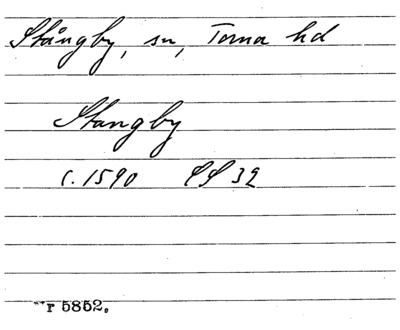 Stångby, sn, Torna hd
Stangby
c. 1590 SS 32
r 5852.